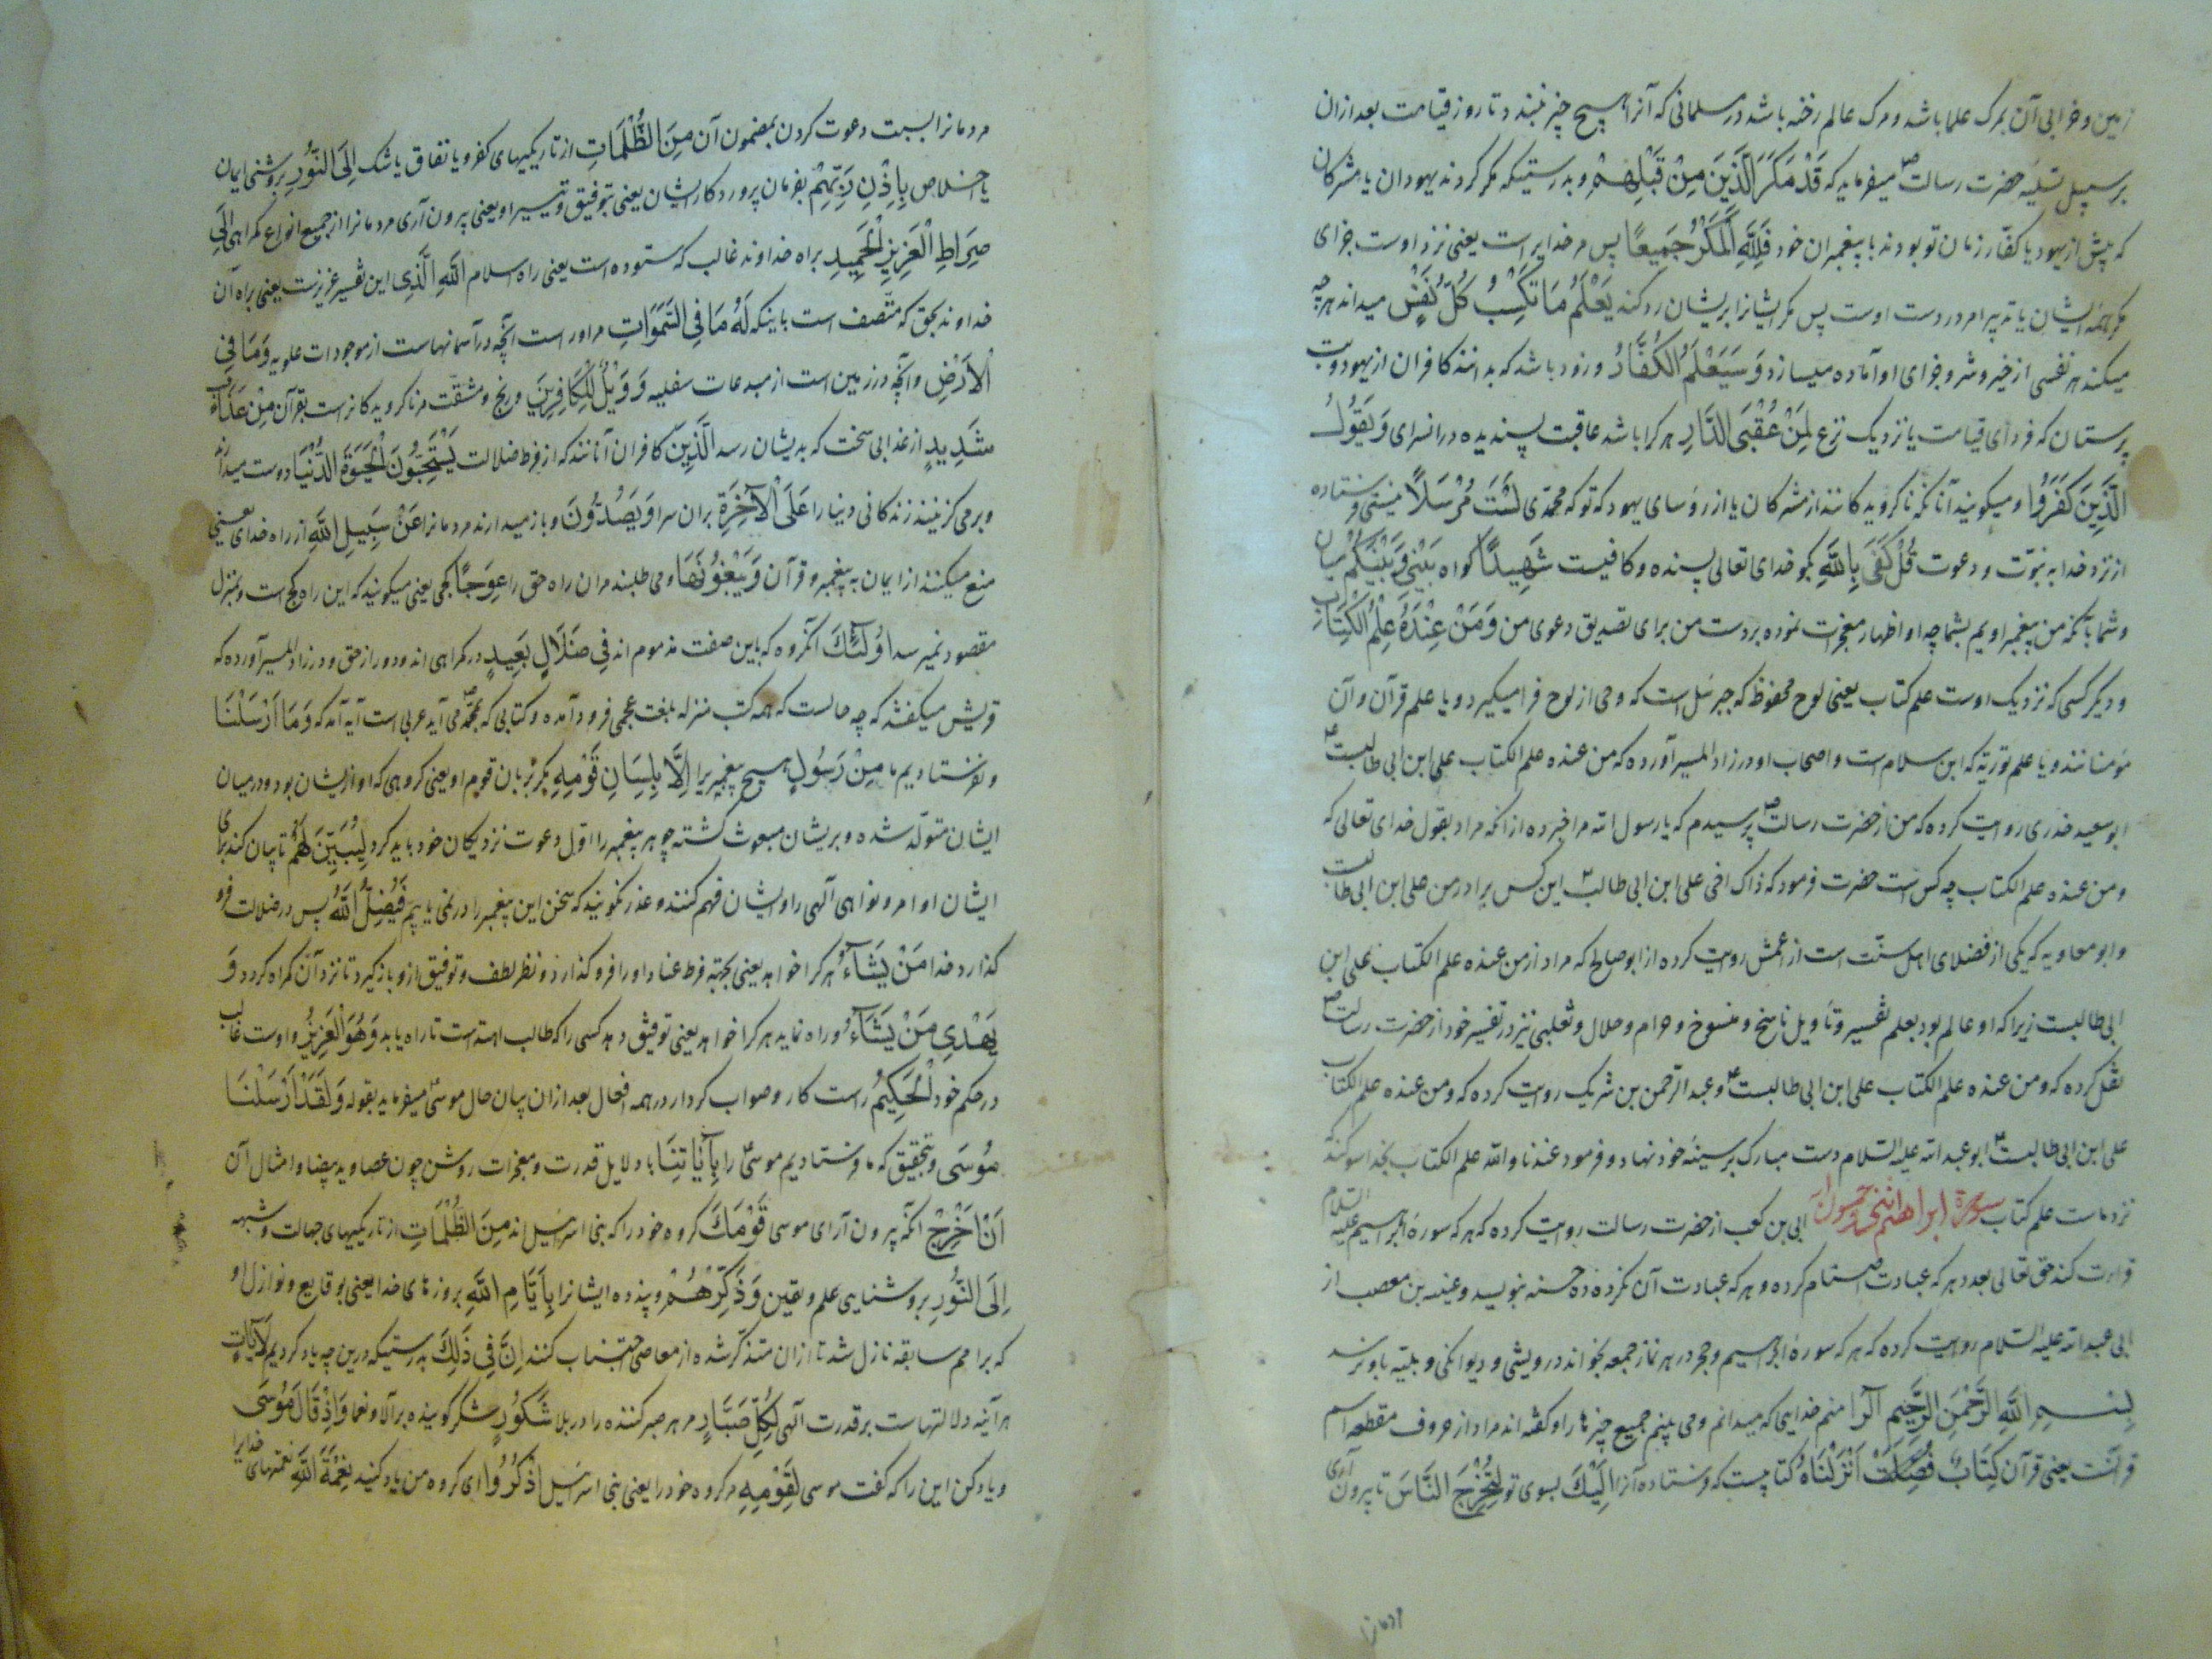 زمین و خرابی آن بمرک علما باشد و مرک عالم رخنه باشد در مسلمانی که آنرا هیچ چیز نبندد تا روز قیامت بعد ازان
بر سپیل تسلیه حضرت رسالت ص میفرماید که قَدْ مَكَرَ الَّذِينَ مِنْ قَبْلِهِمْ و بدرستیکه مکر کردند یهودان یا مشرکان
که پیش از یهود یا کفار زمان تو بودند با پیغمبران خود فَلِلَّهِ الْمَكْرُ جَمِيعًا پس مر خدایراست یعنی نزد اوست جزای
مکر همه ایشان یا تدبیر امور در دست اوست پس مکر ایشانرا بر ایشان رد کند يَعْلَمُ مَا تَكْسِبُ كُلُّ نَفْسٍ میداند هرچه
میکند هر نفسی از خیر و شر و جزای او آماده میسازد وَسَيَعْلَمُ الْكُفَّارُ و زود باشد که بدانند کافران از یهود و بت
پرستان که فردای قیامت یا نزدیک نزع لِمَنْ عُقْبَى الدَّارِ هر کرا باشد عاقبت پسندیده در انسرای وَيَقُولُ
الَّذِينَ كَفَرُوا و میکویند آنانکه ناکرویده کانند از مشرکان یا از رؤسای یهود که تو که محمدی لَسْتَ مُرْسَلًا نیستی فرستاده
از نزد خدا به نبوّت و دعوت قُلْ كَفَى بِاللَّهِ بکو خدای تعالی پسنده و کافیست شَهِيدًا کواه بَيْنِي وَبَيْنَكُمْ میان
و شما بآنکه من پیغمبر اویم بشما چه او اظهار معجزات نموده بر دست من برای تصدیق دعوی من وَمَنْ عِنْدَهُ عِلْمُ الْكِتَابِ
و دیکر کسی که نزدیک اوست علم کتاب یعنی لوح محفوظ که جبرئیل است که وحی از لوح فرا میکیرد و یا علم قرآن و آن
مؤمنانند و یا علم توریة که ابن سلام است و اصحاب او در زاد المسیر آورده که من عنده علم الکتاب علی ابن ابی طالبست ع
ابو سعید خدری روایت کرده که من از حضرت رسالت ص پرسیدم که یا رسول الله مرا خبر ده از انکه مراد بقول خدای تعالی که
و من عنده علم الکتاب چه کس است حضرت فرمود که ذاک اخی علی ابن ابی طالب ع این کس برادر من علی ابن ابی طالبست
و ابو معاویه که یکی از فضلای اهل سنّت است از اعمش روایت کرده از ابو صالح که مراد از من عنده علم الکتاب علی ابن
ابی طالبست زیرا که او عالم بود بعلم تفسیر و تأویل ناسخ و منسوخ و حرام و حلال و ثعلبی نیز در تفسیر خود از حضرت رسالت ص
نقل کرده که و من عنده علم الکتاب علی ابن ابی طالبست ع و عبد الرّحمن بن شریک روایت کرده که و من عنده علم الکتاب
علی ابن ابی طالبست ع ابو عبد الله علیه السّلام دست مبارک بر سینهٔ خود نهاد و فرمود عندنا والله علم الکتاب بخدا سوکند که
نزد ماست علم کتاب سورة ابراهیم ابی بن کعب از حضرت رسالت روایت کرده که هر که سورهٔ ابراهیم علیه السلام
قراءت کند حق تعالی بعدد هر که عبادت اصنام کرده و هر که عبادت آن نکرده ده حسنه بنویسد و بن مصعب از
ابی عبد الله علیه السّلام روایت کرده که هر که سورهٔ ابراهیم و حجر در هر نماز جمعه بخواند درویشی و دیوانکی و بلیّه باو نرسد
بِسْمِ اللَّهِ الرَّحْمَنِ الرَّحِيمِ الٓرا منم خدایی که میدانم و می بینم جمیع چیزها را و کفته اند مراد از حروف مقطعه اسم
قرآنست یعنی قرآن كِتَابٌ فُصِّلَتْ أَنْزَلْنَاهُ کتابیست که فرستاده آنرا إِلَيْكَ بسوی تو لِتُخْرِجَ النَّاسَ تا بیرون آری
مردمانرا
مردمانرا بسبب دعوت کردن بمضمون آن مِنَ الظُّلُمَاتِ از تاریکیهای کفر و یا نفاق یا شک إِلَى النُّورِ بروشنی ایمان
یا اخلاص بِإِذْنِ رَبِّهِمْ بفرمان پروردکار ایشان یعنی بتوفیق و تیسیر او یعنی بیرون آری مردمانرا از جمیع انواع کمراهی إِلَى
صِرَاطِ الْعَزِيزِ الْحَمِيدِ براه خداوند غالب که ستوده است یعنی راه اسلام اللَّهِ الَّذِي این تفسیر عزیزست یعنی براه آن
خداوند بحق که متّصف است باینکه لَهُ مَا فِي السَّمَوَاتِ مر اوراست آنچه در آسمانهاست از موجودات علویه وَمَا فِي
الْأَرْضِ و آنچه در زمین است از مبدعات سفلیه وَوَيْلٌ لِلْكَافِرِينَ و رنج و مشقّت مر ناکرویدکانراست بقرآن مِنْ عَذَابٍ
شَدِيدٍ از عذابی سخت که بدیشان رسد الَّذِينَ کافران آنانند که از فرط ضلالت يَسْتَحِبُّونَ الْحَيَوةَ الدُّنْيَا دوست میدارند
و برمی کزینند زندکانی دنیا را عَلَى الْآخِرَةِ بران سرا وَيَصُدُّونَ و باز میدارند مردمانرا عَنْ سَبِيلِ اللَّهِ از راه خدای یعنی
منع میکنند از ایمان به پیغمبر و قرآن وَيَبْغُونَهَا و می طلبند مران راه حق را عِوَجًا کجی یعنی میکویند که این راه کج است و بمنزل
مقصود نمیرسد أُولَئِكَ آنکروه که باین صفت مذموم اند فِي ضَلَالٍ بَعِيدٍ در کمراهی اند و دور از حق و در زاد المسیر آورده که
قریش میکفتند که چه حالست که همه کتب منزله بلغت عجمی فرود آمده و کتابی که بمحمّد ص می آید عربی است آیه آمد که وَمَا أَرْسَلْنَا
و نفرستادیم ما مِنْ رَسُولٍ هیچ پیغمبریرا إِلَّا بِلِسَانِ قَوْمِهِ مکر بزبان قوم او یعنی کروهی که او از ایشان بود و در میان
ایشان متولّد شده و بریشان مبعوث کشته چو هر پیغمبر را اوّل دعوت نزدیکان خود باید کرد لِيُبَيِّنَ لَهُمْ تا بیان کند برای
ایشان اوامر و نواهی آلهی را و ایشان فهم کنند و عذر نکویند که سخن این پیغمبر را در نمی یابیم فَيُضِلُّ اللَّهُ پس در ضلالت فرو
کذارد خدا مَنْ يَشَاءُ هر کرا خواهد یعنی بجهة فرط عناد او را فرو کذارد و نظر لطف و توفیق ازو باز کیرد تا نزد آن کمراه کردد وَ
يَهْدِي مَنْ يَشَاءُ و راه نماید هر کرا خواهد یعنی توفیق دهد کسی را که طالب است تا راه یابد وَهُوَ الْعَزِيزُ و اوست غالب
در حکم خود الْحَكِيمُ راست کار و صواب کردار در همه افعال بعد ازان بیان حال موسی ع میفرماید بقوله وَلَقَدْ أَرْسَلْنَا
مُوسَى و بتحقیق که ما فرستادیم موسی ع را بِآيَاتِنَا با دلایل قدرت و معجزات روشن چون عصا و ید بیضا و امثال آن
أَنْ أَخْرِجْ آنکه بیرون آر ای موسی قَوْمَكَ کروه خود را که بنی اسرائیل اند مِنَ الظُّلُمَاتِ از تاریکیهای جهالت و شبهه
إِلَى النُّورِ بروشنایی علم و یقین وَذَكِّرْهُمْ و پند ده ایشانرا بِأَيَّامِ اللَّهِ بروزهای خدا یعنی بوقایع و نوازل او
که بر امم سابقه نازل شد تا ازان متذکّر شده از معاصی اجتناب کنند إِنَّ فِي ذَلِكَ بدرستیکه درین چه یاد کردیم لَآيَاتٍ
هر آینه دلالتهاست بر قدرت آلهی لِكُلِّ صَبَّارٍ مر هر صبر کننده را در بلا شَكُورٍ شکر کوینده بر آلا و نعما وَإِذْ قَالَ مُوسَى
و یاد کن این را که کفت موسی لِقَوْمِهِ مر کروه خود را یعنی بنی اسرائیل اذْكُرُوا ای کروه من یاد کنید نِعْمَةَ اللَّهِ نعمتهای خدایرا